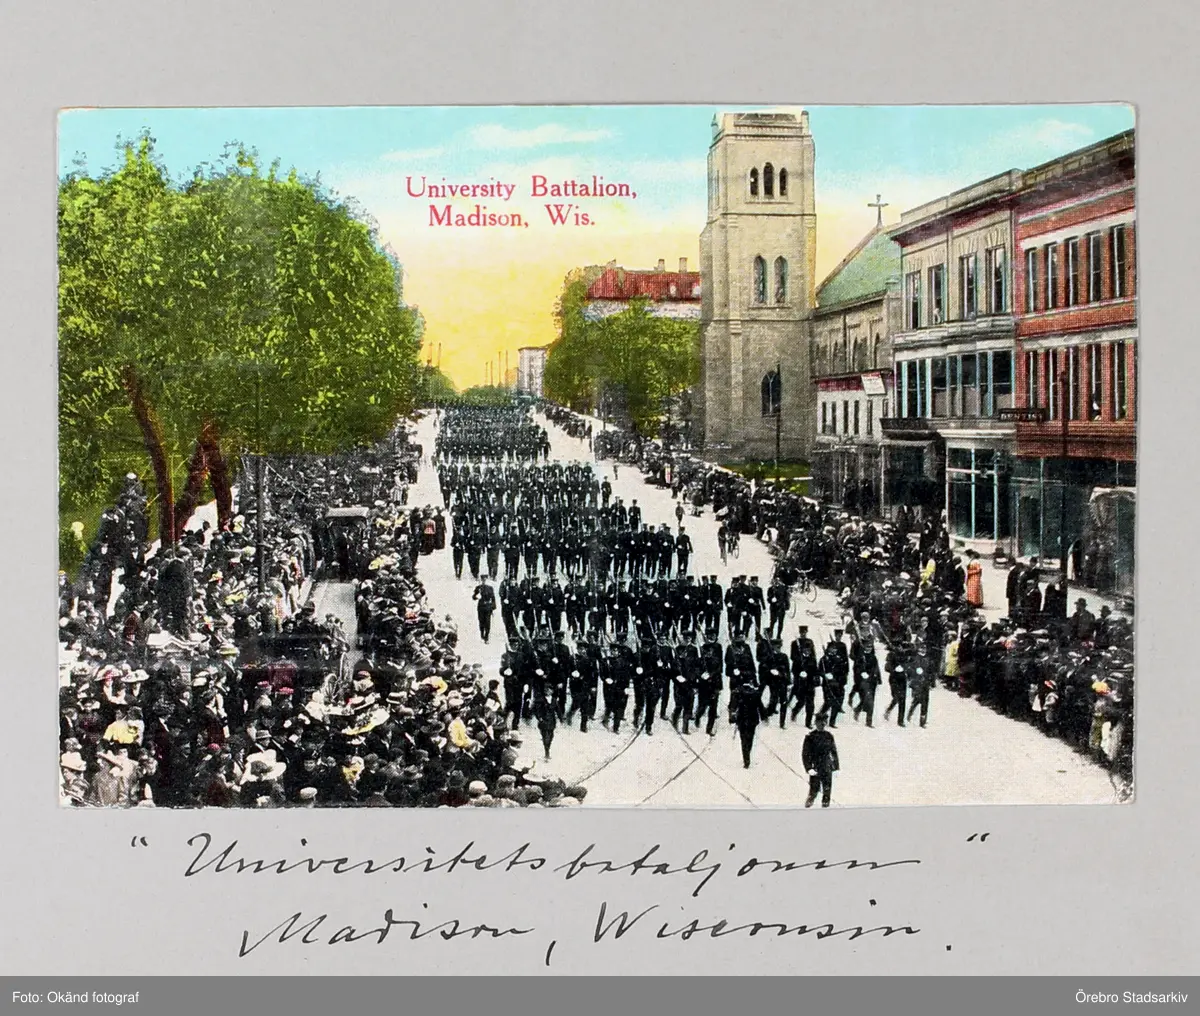 University Battalion,
Madison, Wis.
DENTIST
" Universitetsbataljonen "
Madison, Wisconsin.
Foto: Okänd fotograf
Örebro Stadsarkiv